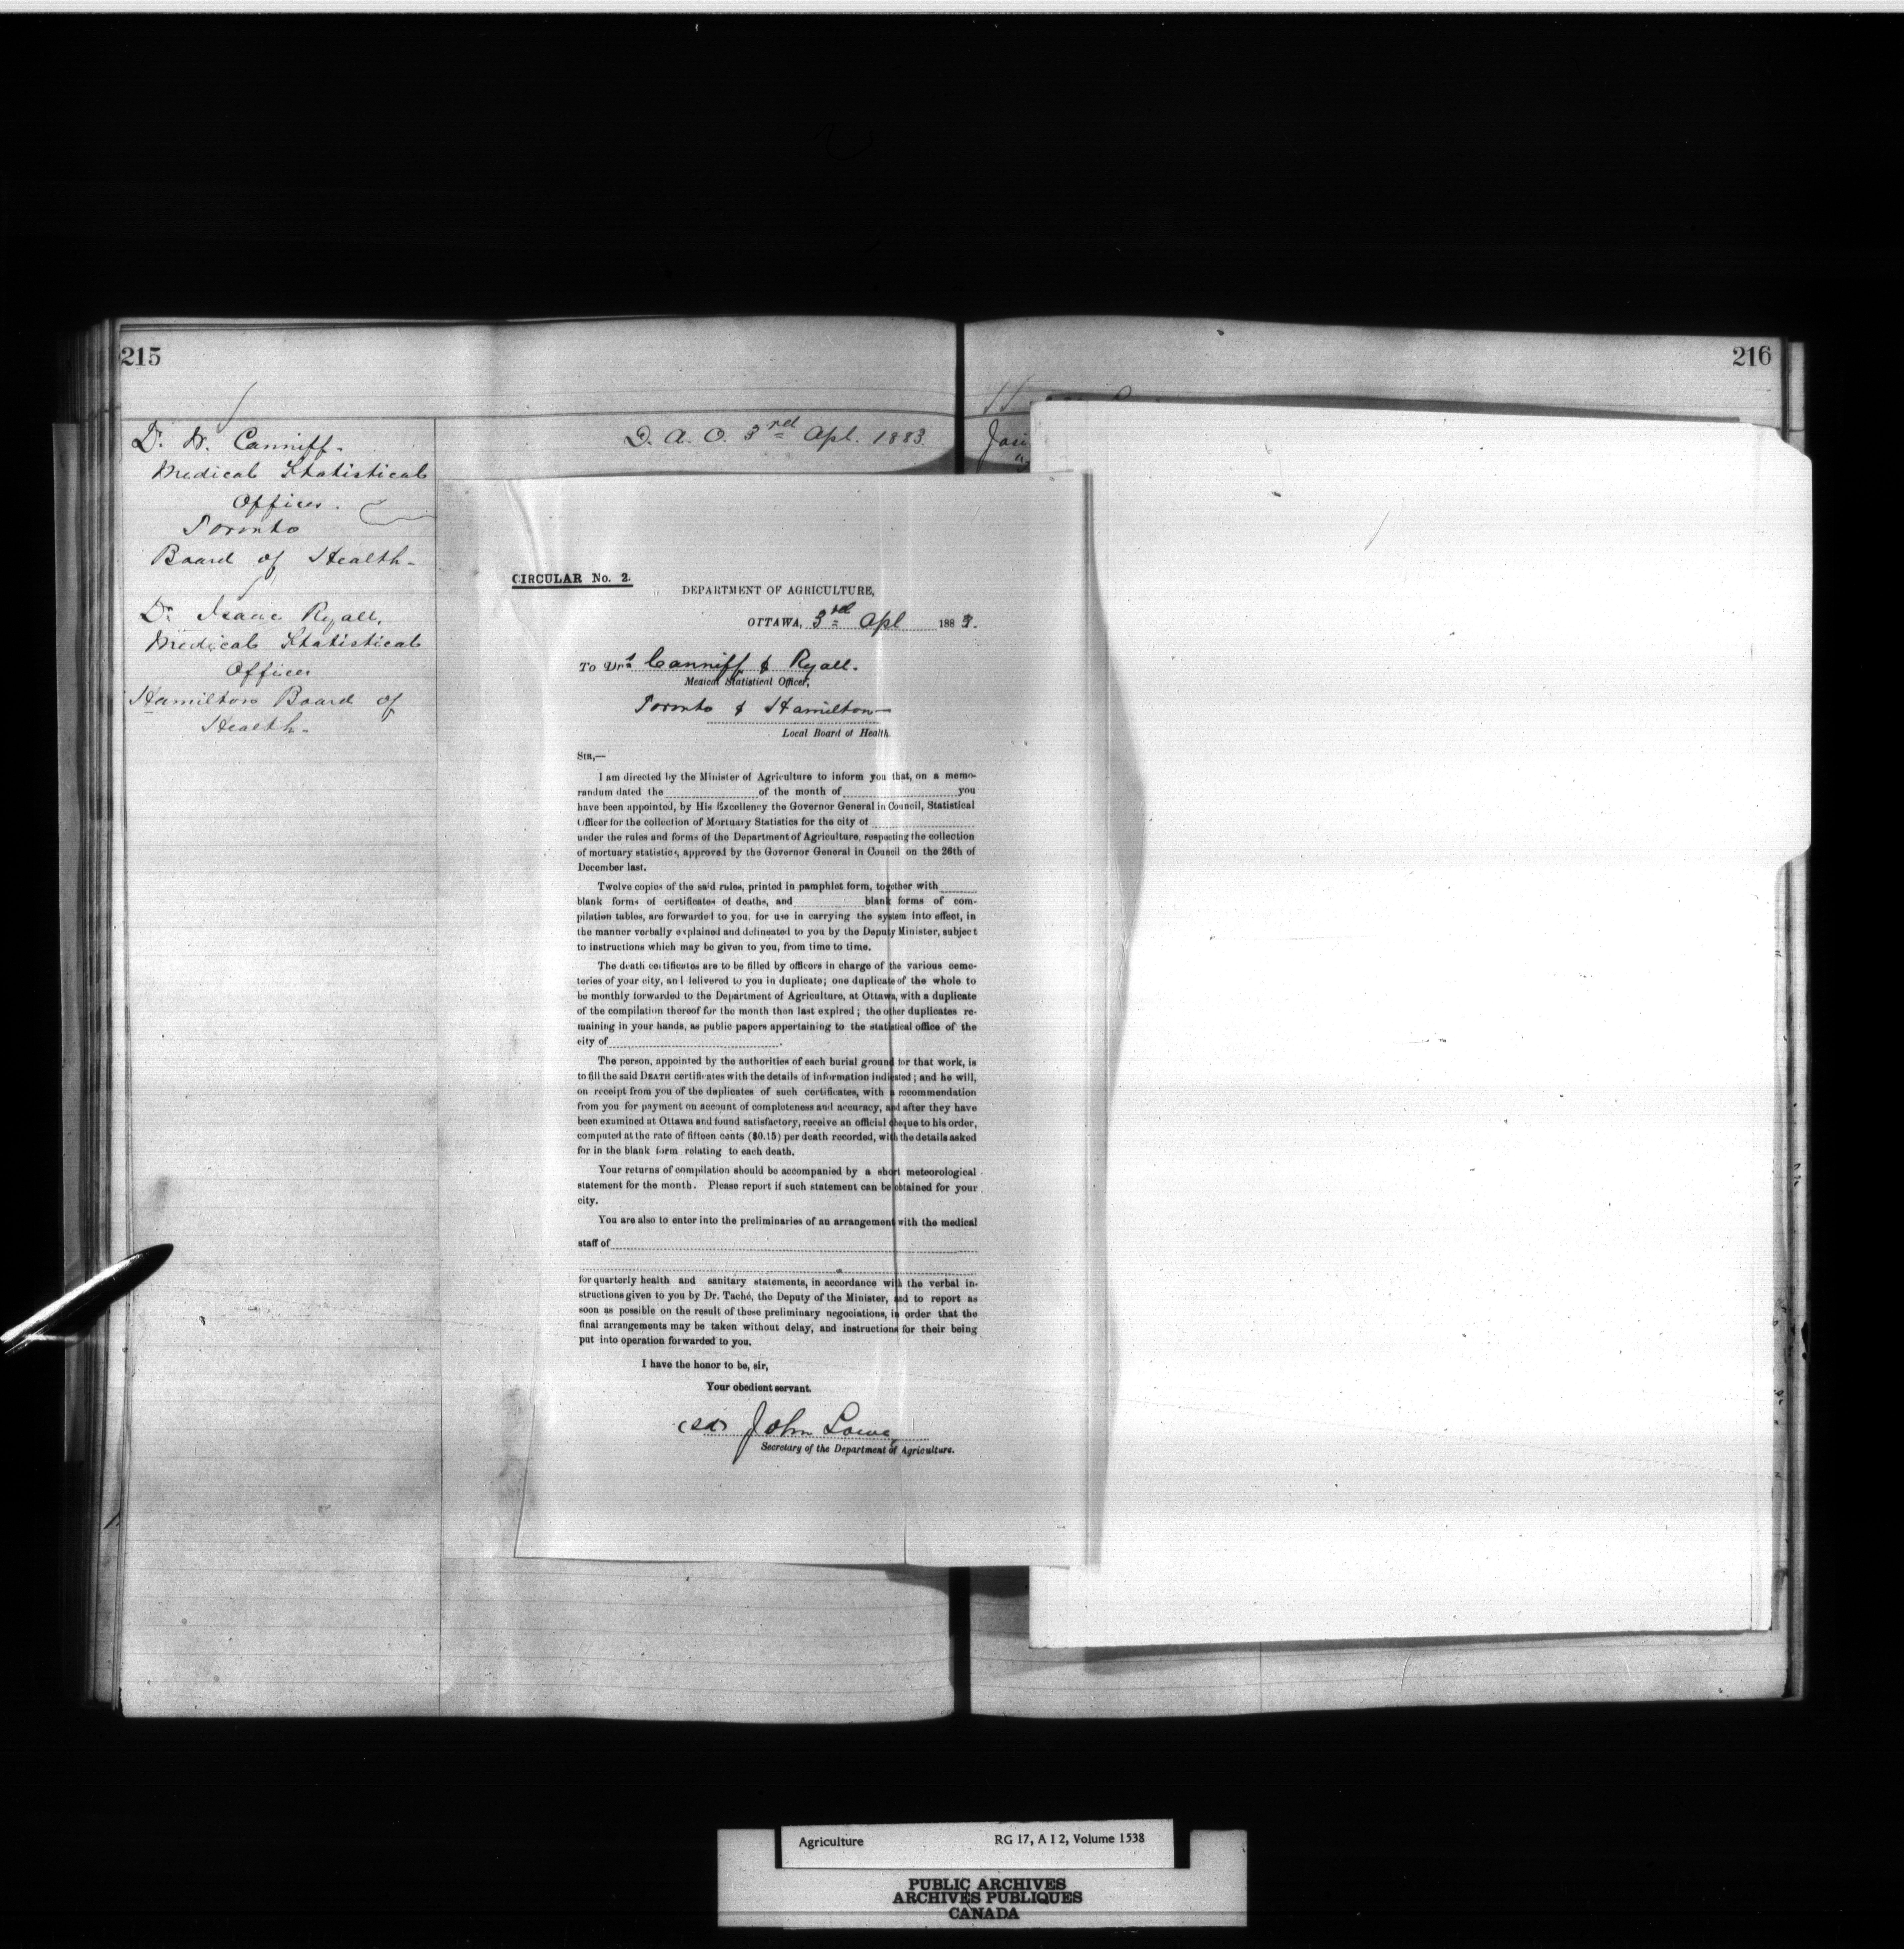 215
216
Dr. W. Canniff.
Medical Statistical
Officer.
Toronto
Board of Health.
Dr. Isaac Ryall,
Medical Statistical
Officer
Hamilton Board of
Health.
D. A. O. 3rd Apl. 1883.
CIRCULAR No. 2.
DEPARTMENT OF AGRICULTURE,
OTTAWA, 3rd Apl 1883.
To Drs Canniff & Ryall.
Medical Statistical Officer,
Toronto & Hamilton
Local Board of Health.
SIR,—
I am directed by the Minister of Agriculture to inform you that, on a memo-
randum dated the of the month of you
have been appointed, by His Excellency the Governor General in Council, Statistical
Officer for the collection of Mortuary Statistics for the city of
under the rules and forms of the Department of Agriculture, respecting the collection
of mortuary statistics, approved by the Governor General in Council on the 26th of
December last.
Twelve copies of the said rules, printed in pamphlet form, together with
blank forms of certificates of deaths, and blank forms of com-
pilation tables, are forwarded to you, for use in carrying the system into effect, in
the manner verbally explained and delineated to you by the Deputy Minister, subject
to instructions which may be given to you, from time to time.
The death certificates are to be filled by officers in charge of the various ceme-
teries of your city, and delivered to you in duplicate; one duplicate of the whole to
be monthly forwarded to the Department of Agriculture, at Ottawa, with a duplicate
of the compilation thereof for the month then last expired; the other duplicates re-
maining in your hands, as public papers appertaining to the statistical office of the
city of .
The person, appointed by the authorities of each burial ground for that work, is
to fill the said DEATH certificates with the details of information indicated; and he will,
on receipt from you of the duplicates of such certificates, with a recommendation
from you for payment on account of completeness and accuracy, and after they have
been examined at Ottawa and found satisfactory, receive an official cheque to his order,
computed at the rate of fifteen cents ($0.15) per death recorded, with the details asked
for in the blank form relating to each death.
Your returns of compilation should be accompanied by a short meteorological
statement for the month. Please report if such statement can be obtained for your
city.
You are also to enter into the preliminaries of an arrangement with the medical
staff of
for quarterly health and sanitary statements, in accordance with the verbal in-
structions given to you by Dr. Taché, the Deputy of the Minister, and to report as
soon as possible on the result of these preliminary negociations, in order that the
final arrangements may be taken without delay, and instructions for their being
put into operation forwarded to you.
I have the honor to be, sir,
Your obedient servant.
(sd) John Lowe,
Secretary of the Department of Agriculture.
Agriculture RG 17, A I 2, Volume 1538
PUBLIC ARCHIVES
ARCHIVES PUBLIQUES
CANADA